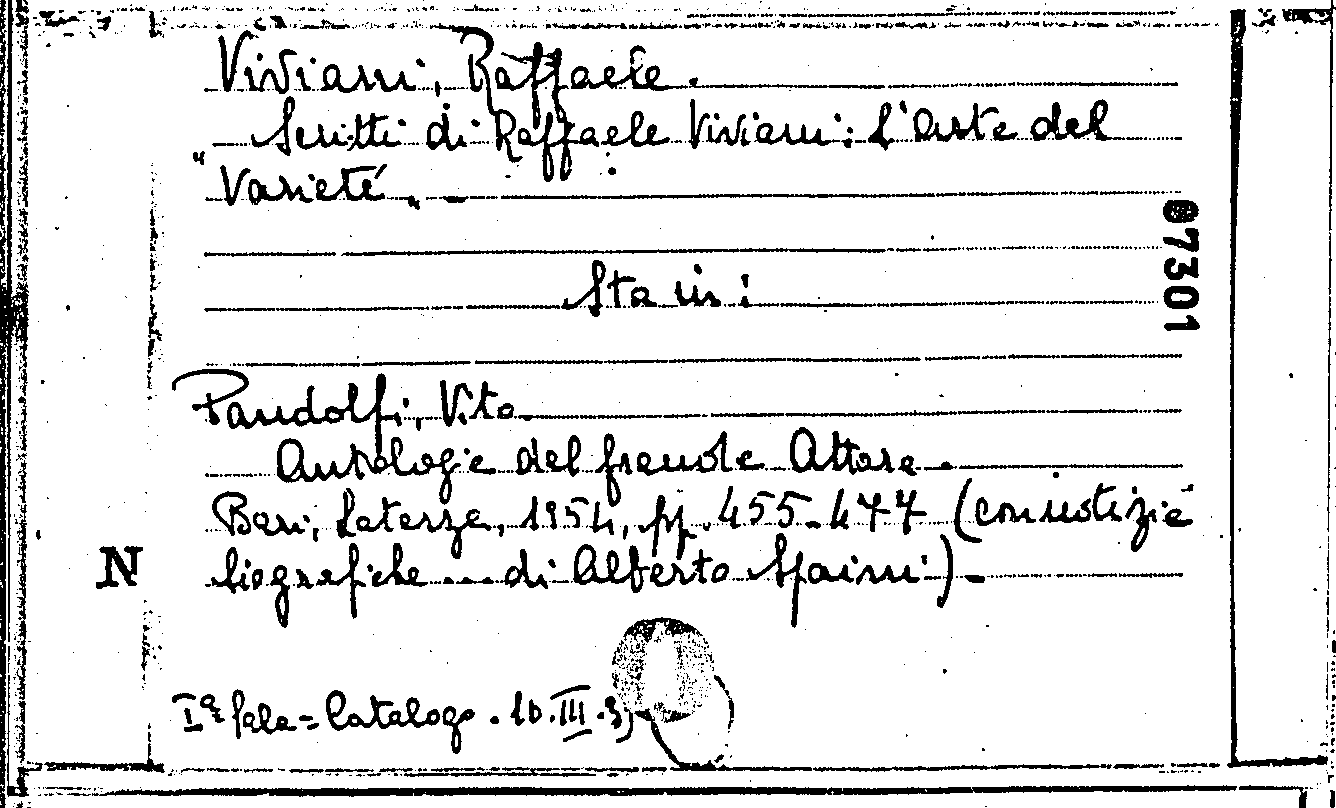 Viviani, Raffaele.
Scritti di Raffaele Viviani: L'Arte del
"Varieté„ -
Sta in:
Pandolfi, Vito.
Antologia del grande Attore.
Bari, Laterza, 1954, pp. 455-477 (con notizie
biografiche ... di Alberto Spaini) -
Iª Sala = Catalogo. 10.III.
07301
N